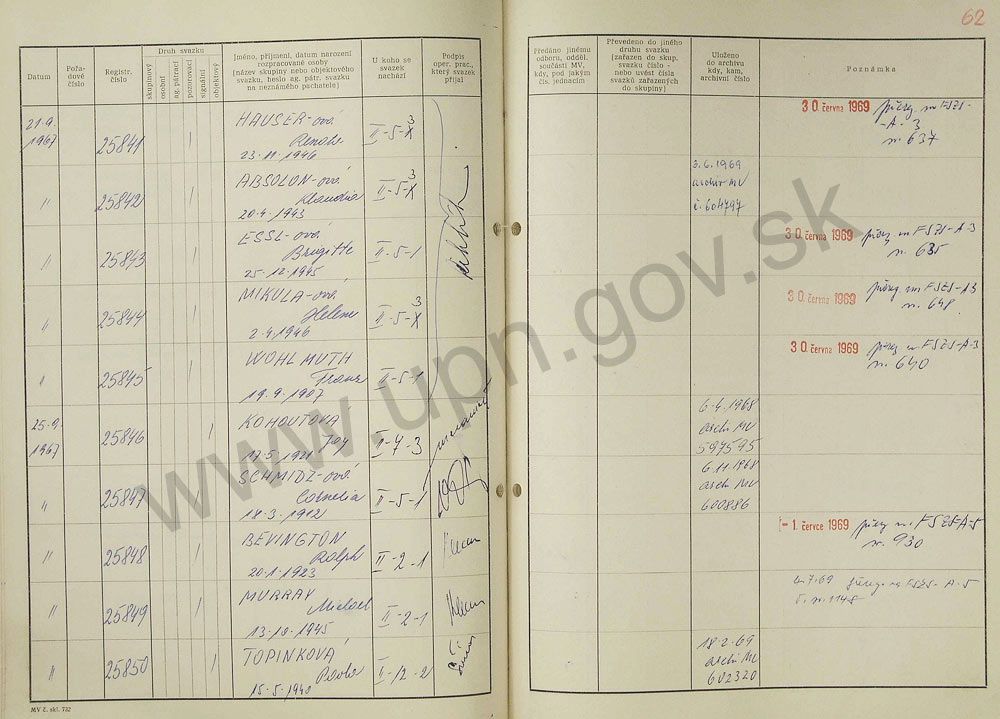 62
Datum
Pořadové číslo
Registr. číslo
Druh svazku
skupinový
osobní
ag. pátrací
pozorovací
signální
objektový
Jméno, příjmení, datum narození
rozpracované osoby
[název skupiny nebo objektového
svazku, heslo ag. pátr. svazku
na neznámého pachatele]
U koho se
svazek
nachází
Podpis
oper. prac.,
který svazek
přijal
Předáno jinému
odboru, odděl.
součásti MV,
kdy, pod jakým
čís. jednacím
Převedeno do jiného
druhu svazku
[zařazen do skup.
svazku číslo -
nebo uvést čísla
svazků zařazených
do skupiny]
Uloženo
do archivu
kdy, kam,
archivní číslo
Poznámka
21.9.
1967
25841
HAUSER-ová
Renate
23.11.1946
II-5-3
30. června 1969
A-3
637
"
25842
ABSOLON-ová
Klaudia
20.4.1943
II-5-3
3.6.1969
archiv MV
č. 604797
"
25843
ESSL-ová
Brigitte
25.12.1945
II-5-1
30. června 1969
FSZS-A-3
635
"
25844
MIKULA-ová
Helene
2.4.1946
II-5-3
30. června 1969
648
"
25845
WOHLMUTH
Franz
19.9.1907
II-5-1
30. června 1969
FSZS-A-3
640
25.9.
1967
25846
KOHOUTOVÁ
Joy
17.5.1921
II-4-3
6.4.1968
archiv MV
597595
"
25847
SCHMIDZ-ová
Cornelia
18.3.1912
II-5-1
6.11.1968
archiv MV
600886
"
25848
BEVINGTON
Ralph
20.1.1923
II-2-1
- 1. července 1969
FSZS-A-5
930
"
25849
MURRAY
Michael
13.10.1945
II-2-1
7.69
FSZS-A-5
1148
"
25850
TOPINKOVÁ
Pavla
15.5.1940
II/2-2
18.2.69
archiv MV
602320
MV č. skl. 732
www.upn.gov.sk